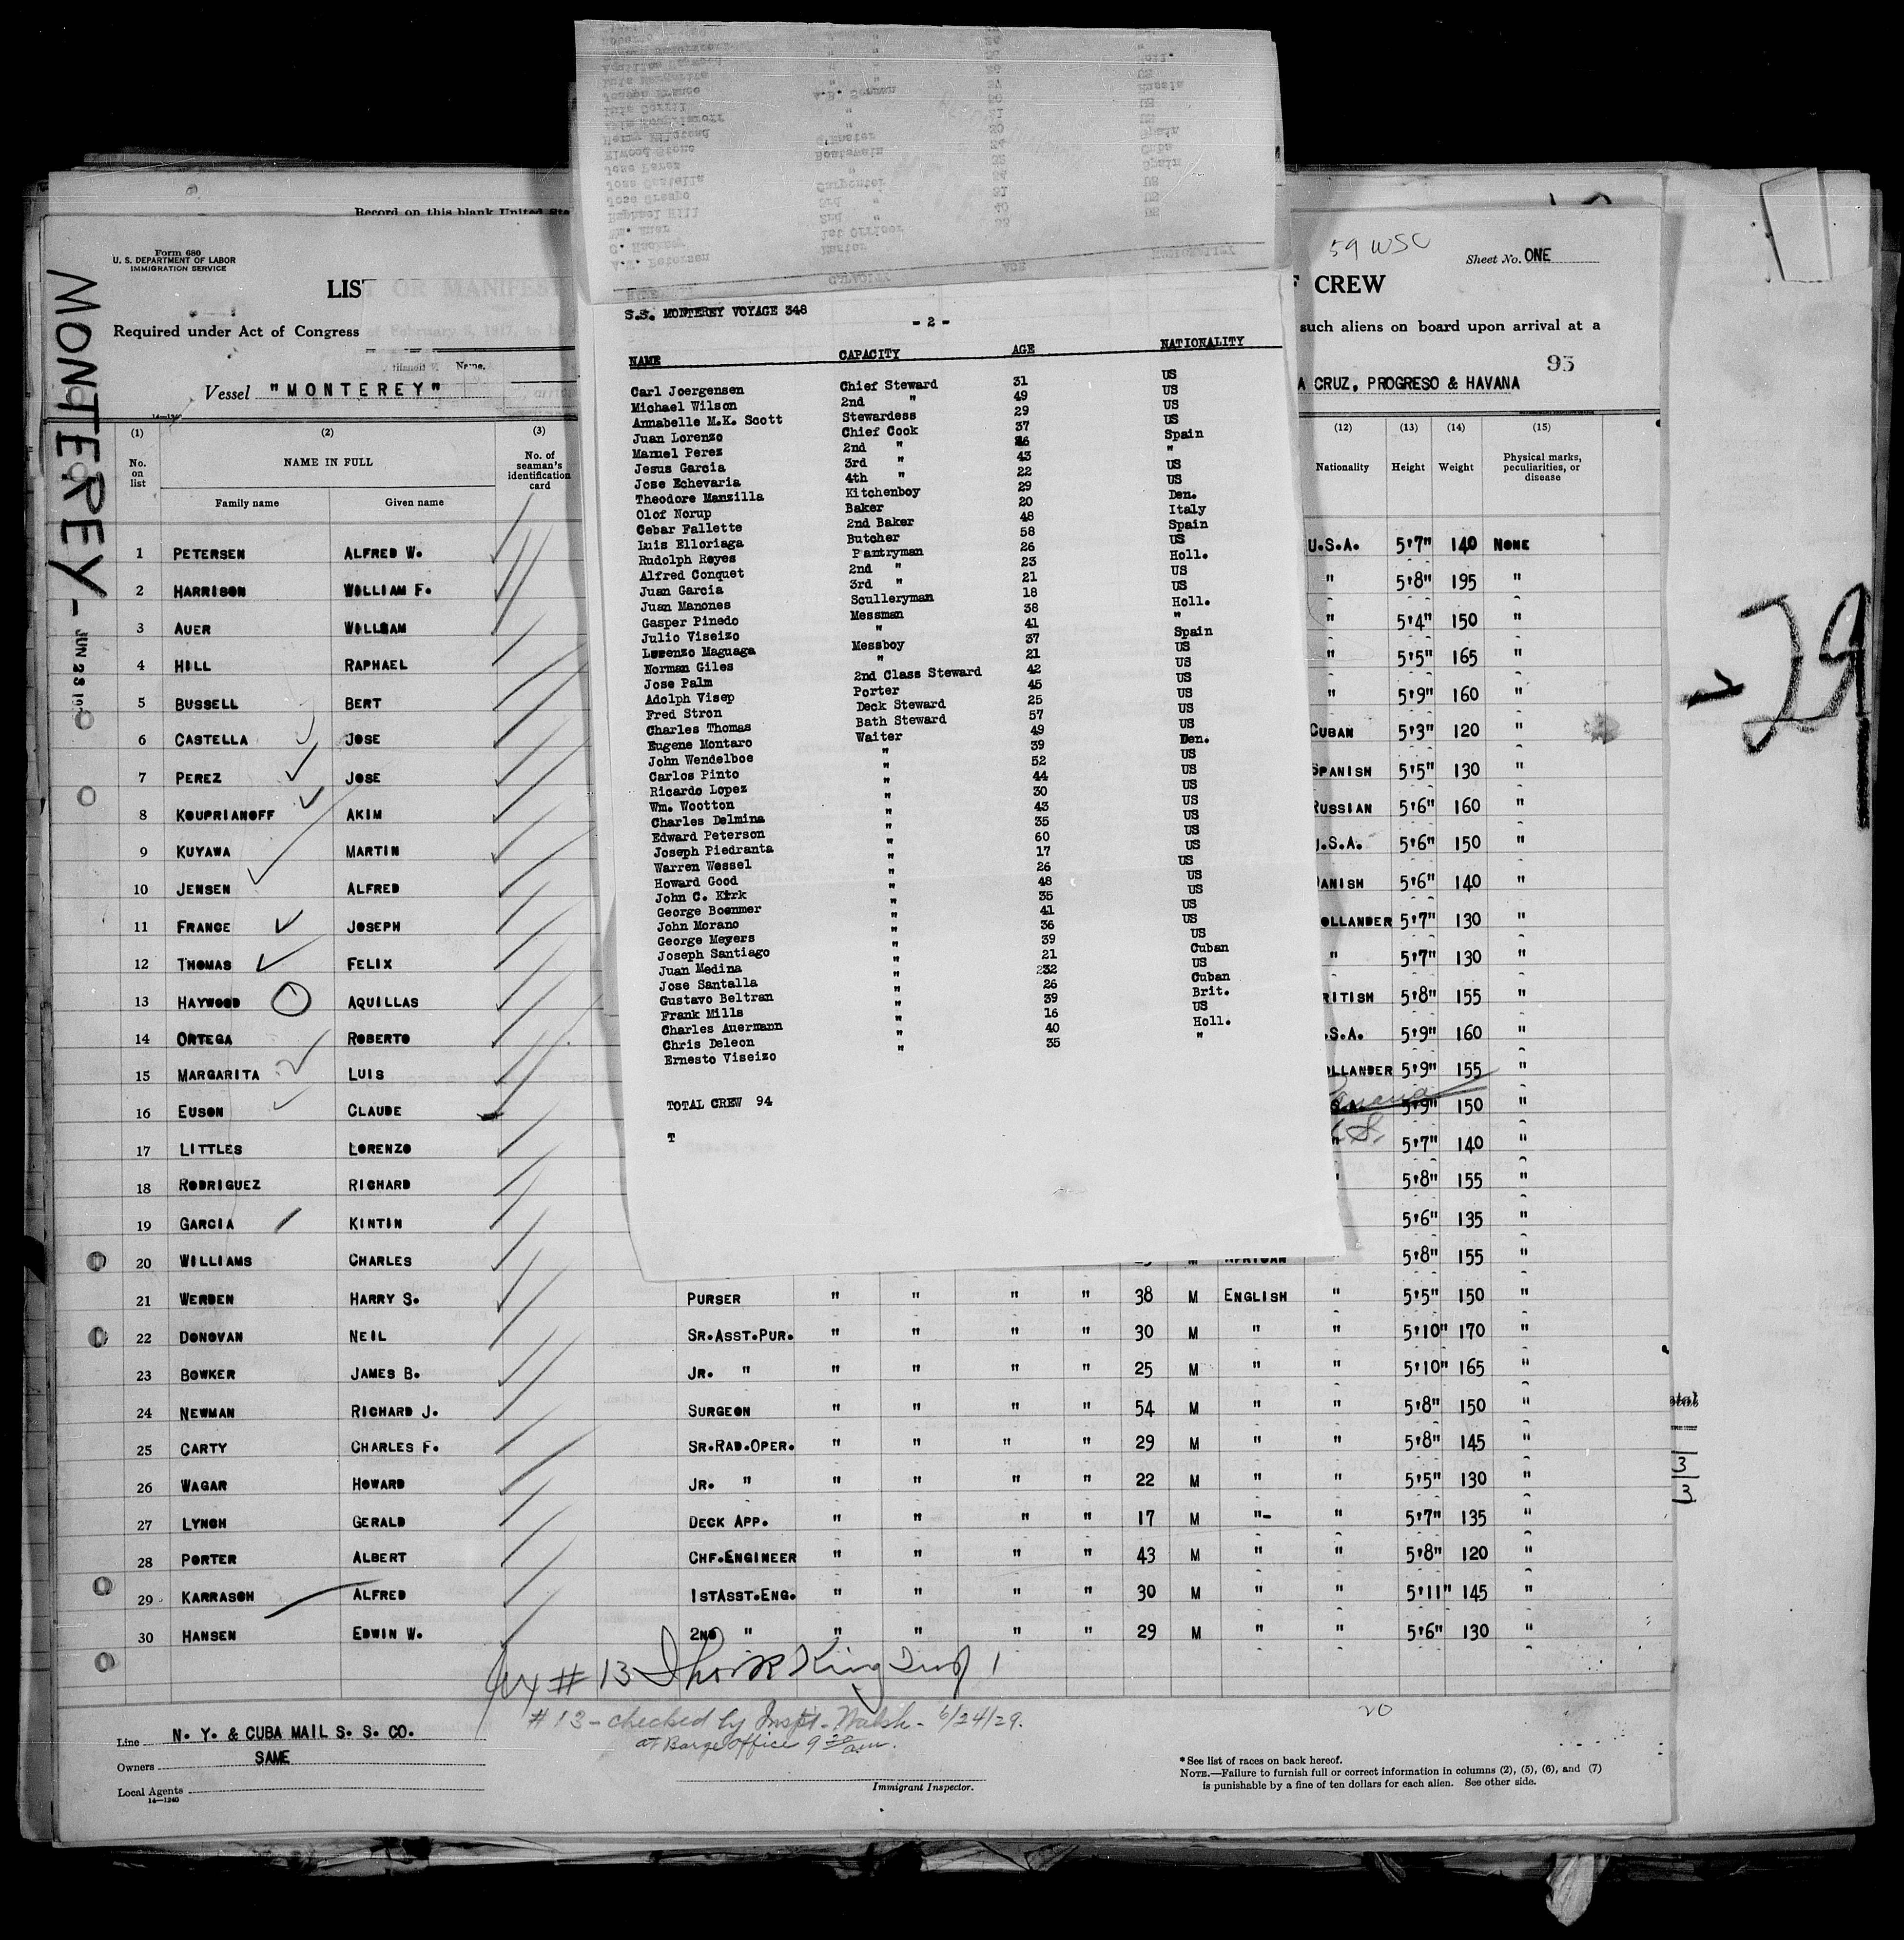 Record on this blank United Sta
MONTEREY - JUN 23 19
Form 680
U. S. DEPARTMENT OF LABOR
IMMIGRATION SERVICE
59 WSC
Sheet No. ONE
LIST OR MANIFEST
F CREW
Required under Act of Congress of February 5, 1917, to be
such aliens on board upon arrival at a
93
Vessel "MONTEREY"
A CRUZ, PROGRESO & HAVANA
S.S. MONTEREY VOYAGE 348
- 2 -
NAME CAPACITY AGE NATIONALITY
Carl Joergensen Chief Steward 31 US
Michael Wilson 2nd " 49 US
Annabelle M.K. Scott Stewardess 29 US
Juan Lorenzo Chief Cook 37 US
Manuel Perez 2nd " Spain
Jesus Garcia 3rd " 43 "
Jose Echevaria 4th " 22 US
Theodore Manzilla Kitchenboy 29 US
Olof Norup Baker 20 Den.
Cebar Fallette 2nd Baker 48 Italy
Luis Elloriaga Butcher 58 Spain
Rudolph Reyes Pantryman 26 US
Alfred Conquet 2nd " 23 Holl.
Juan Garcia 3rd " 21 US
Juan Manones Sculleryman 18 US
Gasper Pinedo Messman 38 Holl.
Julio Viseizo " 41 "
Lorenzo Maguaga Messboy 37 Spain
Norman Giles " 21 US
Jose Palm 2nd Class Steward 42 US
Adolph Visep Porter 45 US
Fred Stron Deck Steward 25 US
Charles Thomas Bath Steward 57 US
Eugene Montaro Waiter 49 US
John Wendelboe " 39 Den.
Carlos Pinto " 52 US
Ricardo Lopez " 44 US
Wm. Wootton " 30 US
Charles Delmina " 43 US
Edward Peterson " 35 US
Joseph Piedranta " 60 US
Warren Wessel " 17 US
Howard Good " 26 US
John C. Kirk " 48 US
George Boenmer " 35 US
John Morano " 41 US
George Meyers " 36 US
Joseph Santiago " 39 US
Juan Medina " 21 Cuban
Jose Santalla " 232 US
Gustavo Beltran " 26 Cuban
Frank Mills " 39 Brit.
Charles Auermann " 16 US
Chris Deleon " 40 Holl.
Ernesto Viseizo " 35 "
TOTAL CREW 94
T
(1) (2) (3) (12) (13) (14) (15)
No. on list NAME IN FULL No. of seaman's identification card Nationality Height Weight Physical marks, peculiarities, or disease
Family name Given name
1 PETERSEN ALFRED W. U.S.A. 5'7" 140 NONE
2 HARRISON WILLIAM F. " 5'8" 195 "
3 AUER WILLIAM " 5'4" 150 "
4 HILL RAPHAEL " 5'5" 165 "
5 BUSSELL BERT " 5'9" 160 "
6 CASTELLA JOSE CUBAN 5'3" 120 "
7 PEREZ JOSE SPANISH 5'5" 130 "
8 KOUPRIANOFF AKIM RUSSIAN 5'6" 160 "
9 KUYAWA MARTIN U.S.A. 5'6" 150 "
10 JENSEN ALFRED DANISH 5'6" 140 "
11 FRANCE JOSEPH HOLLANDER 5'7" 130 "
12 THOMAS FELIX " 5'7" 130 "
13 HAYWOOD AQUILLAS BRITISH 5'8" 155 "
14 ORTEGA ROBERTO U.S.A. 5'9" 160 "
15 MARGARITA LUIS HOLLANDER 5'9" 155 "
16 EUSON CLAUDE S.A. 5'9" 150 "
17 LITTLES LORENZO " 5'7" 140 "
18 RODRIGUEZ RICHARD " 5'8" 155 "
19 GARCIA KINTIN 5'6" 135 "
20 WILLIAMS CHARLES M AFRICAN 5'8" 155 "
21 WERDEN HARRY S. PURSER " " " " 38 M ENGLISH " 5'5" 150 "
22 DONOVAN NEIL SR.ASST.PUR. " " " " 30 M " " 5'10" 170 "
23 BOWKER JAMES B. JR. " " " " " 25 M " " 5'10" 165 "
24 NEWMAN RICHARD J. SURGEON " " " " 54 M " " 5'8" 150 "
25 CARTY CHARLES F. SR.RAD.OPER. " " " " 29 M " " 5'8" 145 "
26 WAGAR HOWARD JR. " " " " " 22 M " " 5'5" 130 "
27 LYNCH GERALD DECK APP. " " " " 17 M "- " 5'7" 135 "
28 PORTER ALBERT CHF.ENGINEER " " " " 43 M " " 5'8" 120 "
29 KARRASCH ALFRED 1STASST.ENG. " " " " 30 M " " 5'11" 145 "
30 HANSEN EDWIN W. 2ND " " " " " 29 M " " 5'6" 130 "
-29
3
3
# 13
#13 - checked by Inspt. Walsh - 6/24/29.
at Barge Office 9 30 am.
20
Line N. Y. & CUBA MAIL S. S. CO.
Owners SAME
Local Agents
14—1240
Immigrant Inspector.
* See list of races on back hereof.
NOTE.—Failure to furnish full or correct information in columns (2), (5), (6), and (7)
is punishable by a fine of ten dollars for each alien. See other side.